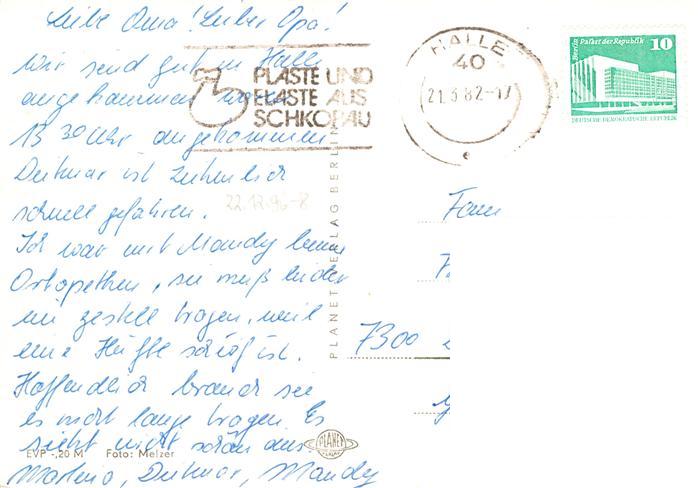 Liebe Oma! Lieber Opa!
Wir sind gut in Halle
angekommen
13 30 Uhr angekommen
Dietmar ist ziehmlich
schnell gefahren.
Ich war mit Mandy beim
Ortopethen, sie muß leider
ein gestell tragen, weil
eine Hüfte schief ist.
Hoffendlich brauch sie
es nicht lange tragen. Es
sieht nicht schön aus.
Marleno, Dietmar, Mandy
75
PLASTE UND
ELASTE AUS
SCHKOPAU
HALLE
40
21.3.82-17
Berlin Palast der Republik 10
DEUTSCHE DEMOKRATISCHE REPUBLIK
22.12.96-8
PLANET-VERLAG BERLIN
Fam
7300
EVP -,20 M Foto: Melzer
PLANET
VERLAG